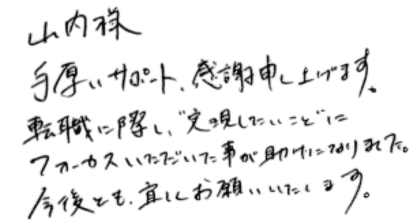 山内様
手厚いサポート、感謝申し上げます。
転職に際し、"実現したいこと"に
フォーカスいただいた事が助けになりました。
今後とも、宜しくお願いいたします。